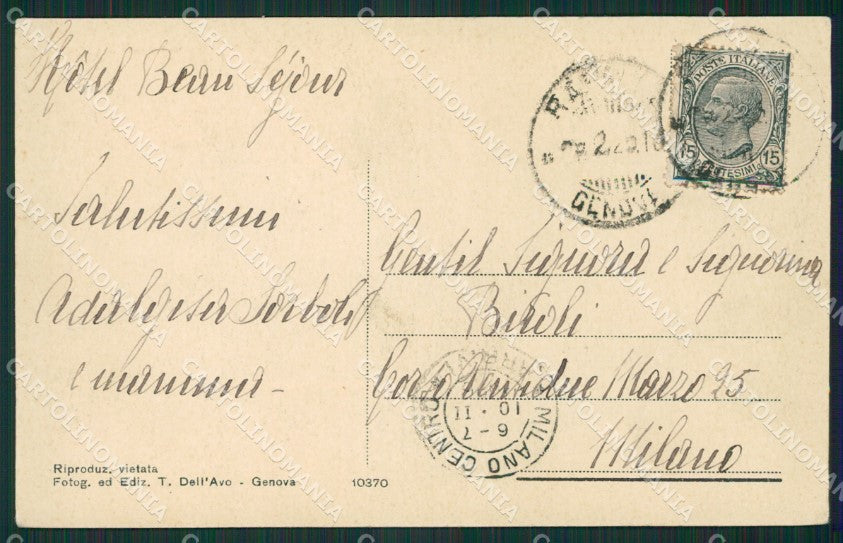 Hôtel Beau Séjour
Salutissimi
Adalgisa
e mamma
Riproduz. vietata
Fotog. ed Ediz. T. Dell'Avo - Genova
10370
POSTE ITALIANE
15 CENTESIMI 15
GENOVA
Gentil Signora e Signorina
Bitoli
Marzo 25
Milano
MILANO CENTRO
10 · II
6-7
CARTOLINOMANIA